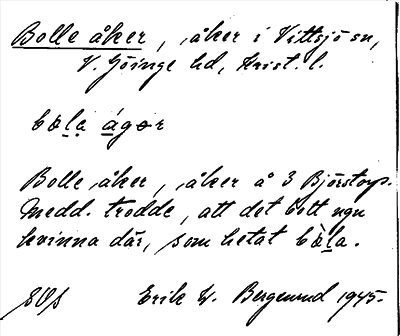 Bolle åker, åker i Vittsjö sn,
V. Göinge hd, Krist. l.
bola ágər
Bolle åker, åker å 3 Björstorp.
Medd. trodde, att det bott ngn
kvinna där, som hetat bòla.
Erik W. Bergenrud 1945.